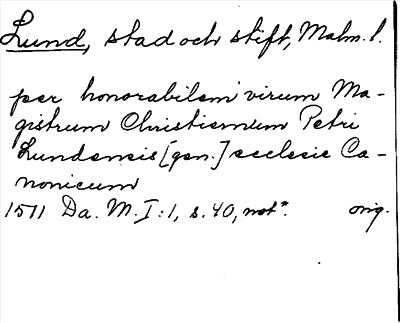 Lund, stad och stift, Malm. l.
per honorabilem virum Ma-
gistrum Christiernum Petri
Lundensis [gen.] ecclesie Ca-
nonicum
1511 Da. M. I:1, s. 40, not*. orig.